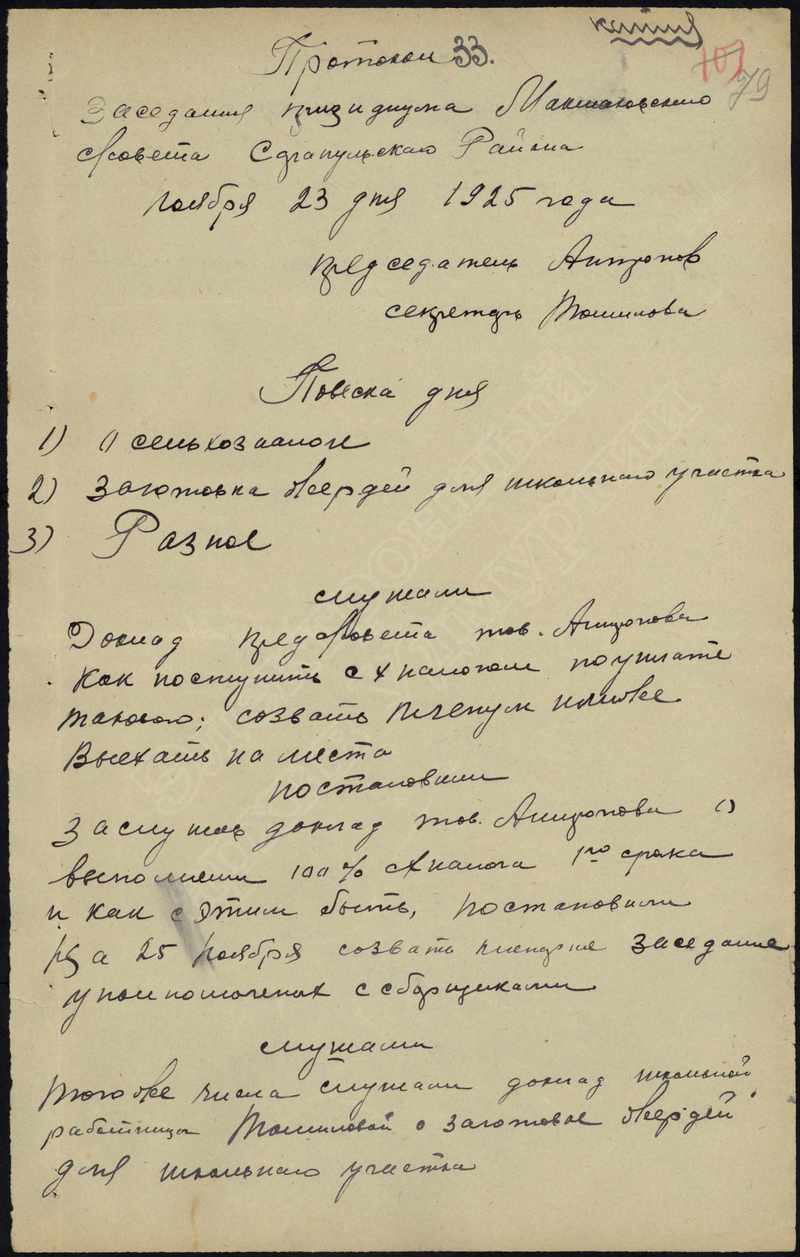 копия
107
79
Протокол 33.
Заседания президиума Макшаковского
с/совета Сарапульскаго Района
ноября 23 дня 1925 года
председатель Антропов
секретарь Томилова
Повеска дня
1) О сельхозналоге
2) Заготовка жердей для школьнаго участка
3) Разное
слушали
Доклад пред с/совета тов. Антропова
как поступить с х налогом по уплате
таковаго; созвать пленум или же
выехать на места
постановили
Заслушав доклад тов. Антропова о
выполнении 100% с/х налога 1го срока
и как с этим быть, постановили
на 25 ноября созвать заседание
уполномоченых с сборщиками
слушали
того же числа слушали доклад школьной
работницы Томиловой о заготовке жердей
для школьнаго участка